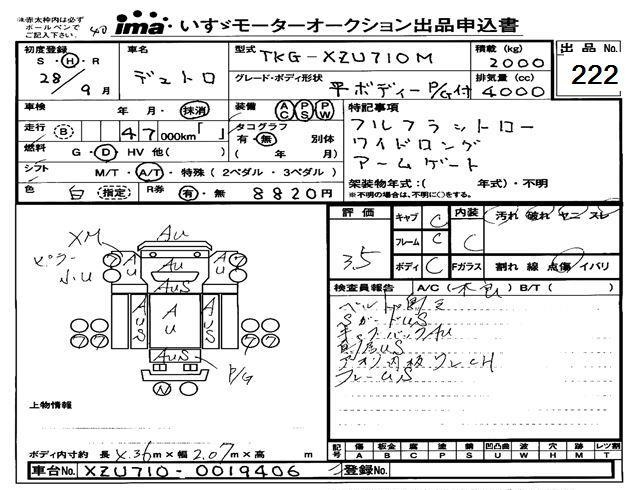 ※赤太枠内は必ず
ボールペンで
ご記入下さい
ima いすゞモーターオークション出品申込書
初度登録 車名 型式 TKG-XZU710M 積載(kg) 2000 出品No.
S・H・R 28/9月 デュトロ グレード・ボディ形状 平ボディーP/G付 排気量(cc) 4000 222
車検 年・月・抹消 装備 AC PS PW 特記事項
走行 (B) 47000km「 」 タコグラフ 有・無 別体 フルフラットロー
燃料 G・D・HV 他( ) ( 年 月) ワイドロング
シフト M/T・A/T・特殊(2ペダル・3ペダル) アームゲート
色 白(指定) R券 有・無 8820円 架装物年式:( 年式)・不明
※不明の場合は、不明に○をする。
評価 3.5 キャブ C 内装 C 汚れ 破れ ヤニ スレ
フレーム C
ボディ C Fガラス 割れ 線 点傷 イバリ
検査員報告 A/C(不良) B/T( )
XM AU
ピラー AU AU AU
小U AUS
AUS AU AUS
AUS P/G
N
SガードUS
キャブバックAU
アオリ内板ワレCH
フレームUS
上物情報
ボディ内寸約 長 m×幅2.07m×高 m
記号 傷 板金 腐 塗 錆 凹凸曲 波 穴 跡 レツ割
A B C P S U W H M T
車台No. XZU710-0019406 登録No.